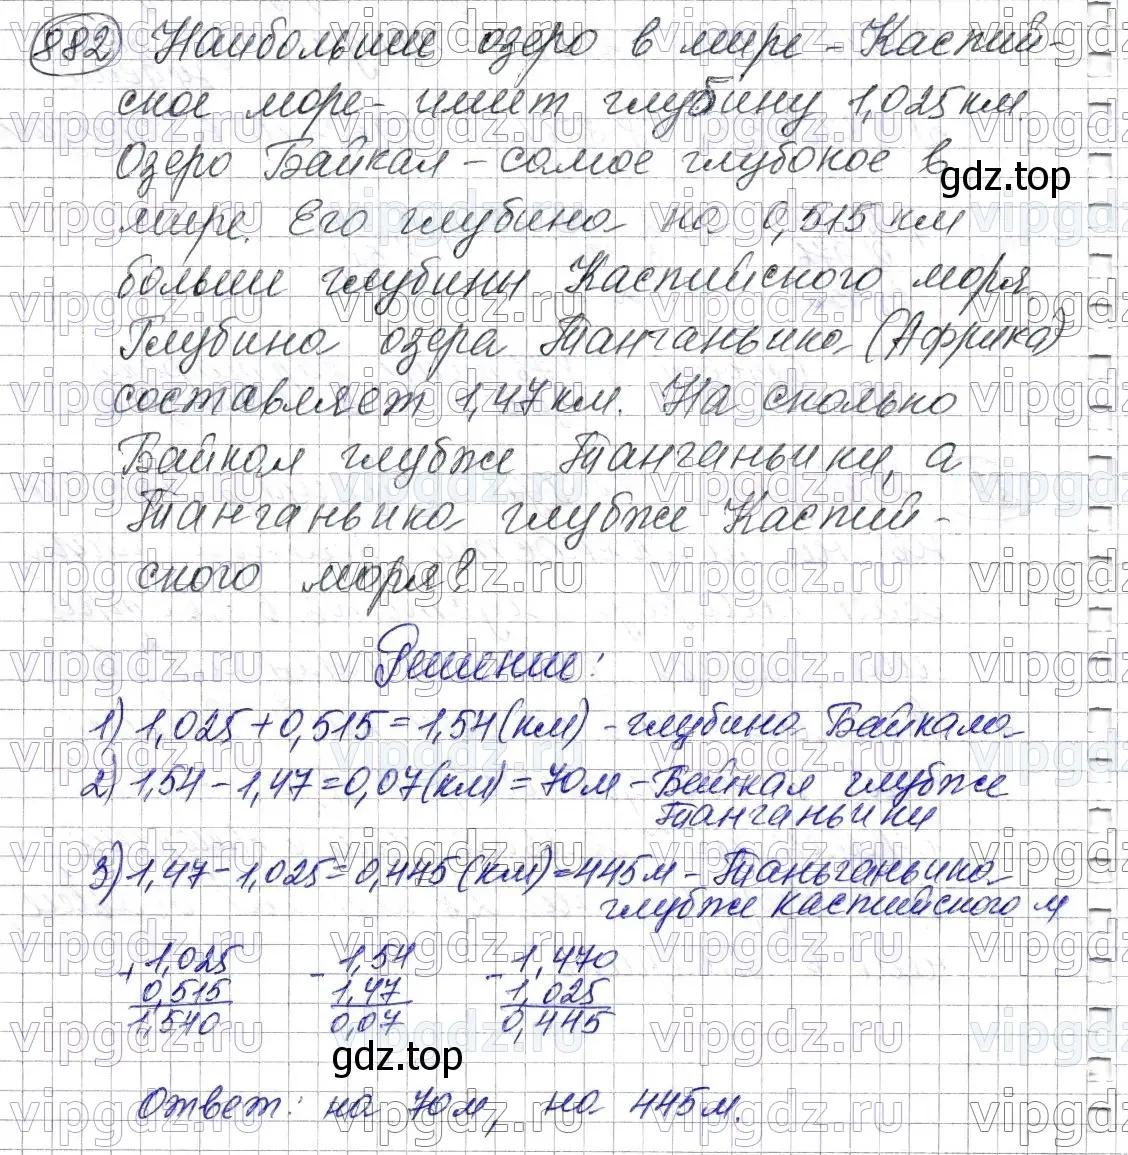 882 Наибольшее озеро в мире - Каспий-
ское море - имеет глубину 1,025 км
Озеро Байкал - самое глубокое в
gdz.top
мире. Его глубина на 0,515 км
больше глубины Каспийского моря.
Глубина озера Танганьика (Африка)
составляет 1,47 км. На сколько
Байкал глубже Танганьики, а
Танганьика глубже Каспий-
ского моря?
Решение:
1) 1,025 + 0,515 = 1,54 (км) - глубина Байкала
2) 1,54 - 1,47 = 0,07 (км) = 70 м - Байкал глубже
Танганьики
3) 1,47 - 1,025 = 0,445 (км) = 445 м - Таньганьика
глубже каспийского м
+ 1,025 - 1,54 - 1,470
0,515 1,47 1,025
1,540 0,07 0,445
gdz.top
Ответ: на 70 м, на 445 м.
vipgdz.ru